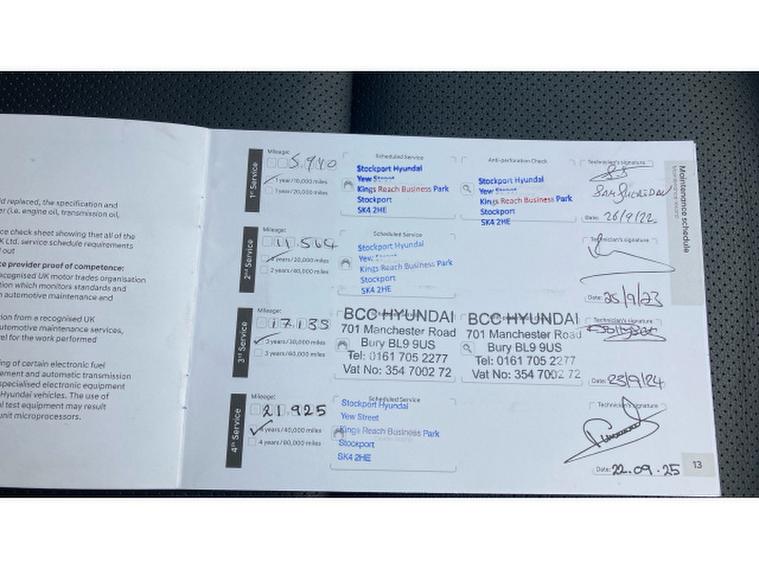 d replaced, the specification and
er (i.e. engine oil, transmission oil,
ce check sheet showing that all of the
K Ltd. service schedule requirements
out
ce provider proof of competence:
ecognised UK motor trades organisation
tion which monitors standards and
n automotive maintenance and
tion from a recognised UK
utomotive maintenance services,
el for the work performed
ng of certain electronic fuel
ement and automatic transmission
specialised electronic equipment
Hyundai vehicles. The use of
l test equipment may result
unit microprocessors.
Maintenance schedule
1st Service
Mileage:
5,940
1 year/10,000 miles
1 year/20,000 miles
Scheduled Service
Stockport Hyundai
Yew Street
Kings Reach Business Park
Stockport
SK4 2HE
Anti-perforation Check
Stockport Hyundai
Yew Street
Kings Reach Business Park
Stockport
SK4 2HE
Technician's signature
Date: 26/9/22
2nd Service
Mileage:
11,564
2 years/20,000 miles
2 years/40,000 miles
Scheduled Service
Stockport Hyundai
Yew Street
Kings Reach Business Park
Stockport
SK4 2HE
Technician's signature
Date: 25/9/23
3rd Service
Mileage:
17135
3 years/30,000 miles
3 years/60,000 miles
BCC HYUNDAI
701 Manchester Road
Bury BL9 9US
Tel: 0161 705 2277
Vat No: 354 7002 72
BCC HYUNDAI
701 Manchester Road
Bury BL9 9US
Tel: 0161 705 2277
Vat No: 354 7002 72
Technician's signature
Date: 23/9/24
4th Service
Mileage:
21,925
4 years/40,000 miles
4 years/80,000 miles
Scheduled Service
Stockport Hyundai
Yew Street
Kings Reach Business Park
Stockport
SK4 2HE
Technician's signature
Date: 22.09.25
13